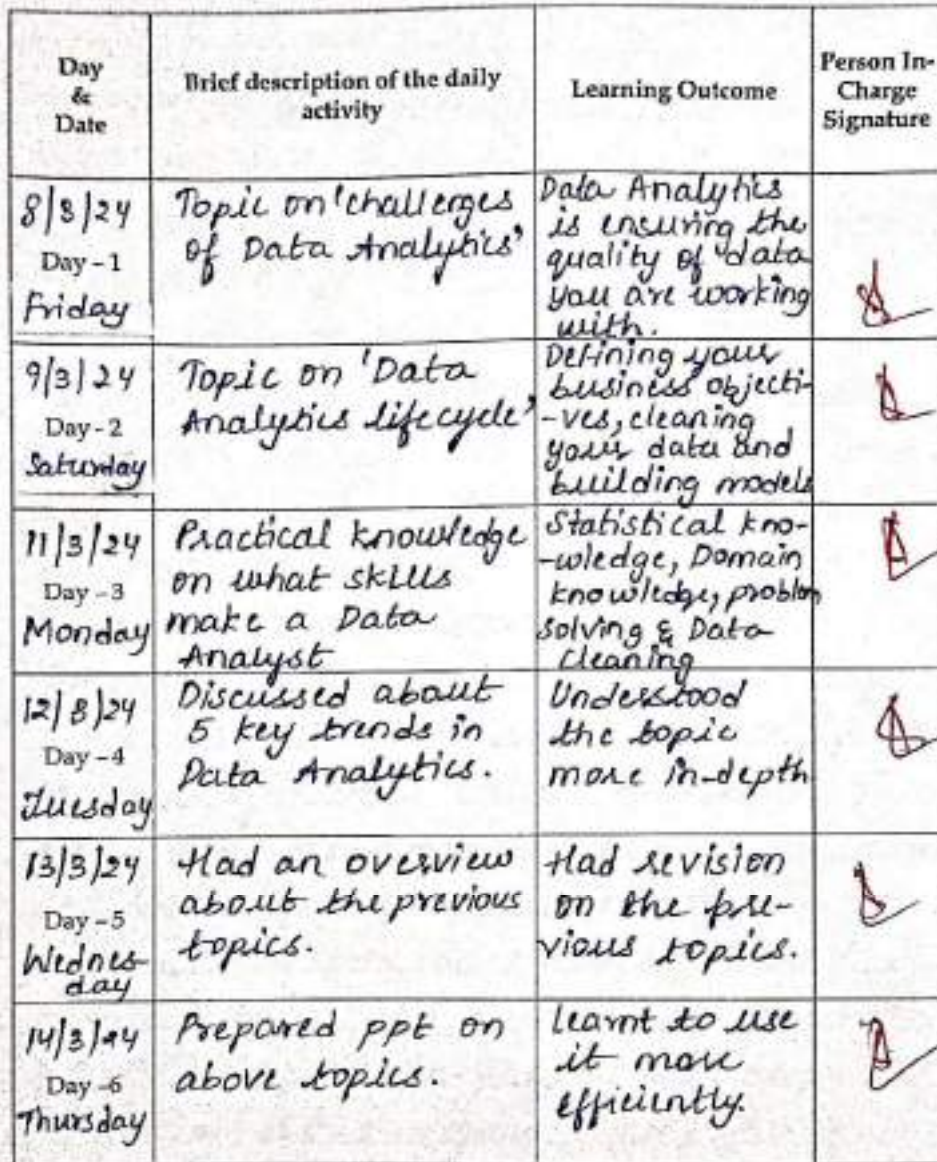 Day
&
Date
Brief description of the daily
activity
Learning Outcome
Person In-
Charge
Signature
8/3/24
Day - 1
Friday
Topic on 'challenges
of Data Analytics'
Data Analytics
is ensuring the
quality of data
you are working
with.
9/3/24
Day - 2
Saturday
Topic on 'Data
Analytics lifecycle'
Defining your
business objecti-
-ves, cleaning
your data and
building models
11/3/24
Day - 3
Monday
Practical knowledge
on what skills
make a Data
Analyst
Statistical kno-
-wledge, Domain
knowledge, problem
solving & Data
cleaning
12/3/24
Day - 4
Tuesday
Discussed about
5 key trends in
Data Analytics.
Understood
the topic
more in-depth
13/3/24
Day - 5
Wednes-
day
Had an overview
about the previous
topics.
Had revision
on the pre-
vious topics.
14/3/24
Day - 6
Thursday
Prepared ppt on
above topics.
learnt to use
it more
efficiently.